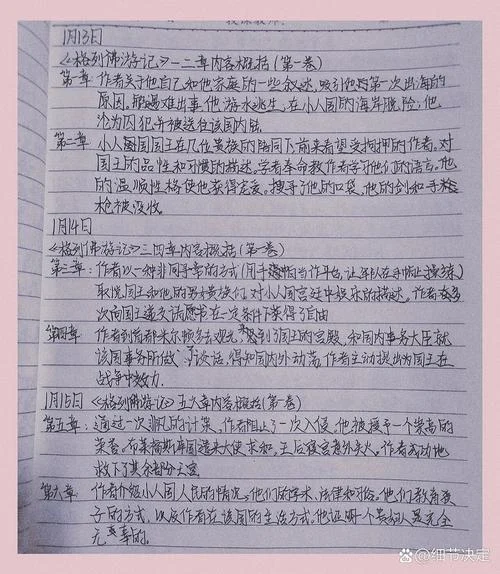 授课教师:
1月13日
《格列佛游记》一二章内容概括(第一卷)
第一章 作者关于他自己和他家庭的一些叙述,吸引他的第一次出海的
原因。船遇难出事,他游水逃生,在小人国的海岸脱险,他
沦为囚犯并被送往该国内陆
第二章 小人国国王在几位贵族的陪同下前来看望受拘押的作者。对
国王的品性和习惯的描述。学者奉命教作者学习他们的语言。他
的温顺性格使他获得宠爱。搜寻了他的口袋,他的剑和手
枪被没收
1月14日
《格列佛游记》三四章内容概括(第一卷)
第三章:作者以一种非同寻常的方式(用手帕当作平台,让军队在手帕上操练)
取悦国王和他的男女贵族们,对小人国宫廷中娱乐的描述。作者
次向国王递交请愿书在一定条件下获得了自由
第四章 作者到首都米尔顿多去观光,到了国王的宫殿,和国内事务大臣就
该国事务所做了谈话,得知国内外动荡,作者主动提出为国王在
战争中效力.
1月15日 《格列佛游记》五六章内容概括(第一卷)
第五章:通过一次非凡的计策,作者阻止了一次入侵,他被授予一个崇高的
荣誉。布莱福斯库国遣来大使求和,王后寝宫意外失火。作者成功地
救下了其余部分王宫
第六章 作者介绍小人国人民的情况。他们的学术、法律和习俗。他们教育孩
子的方式,以及作者在该国的生活方式,他证明一个贵妇人是完全
无辜的.
细节决定